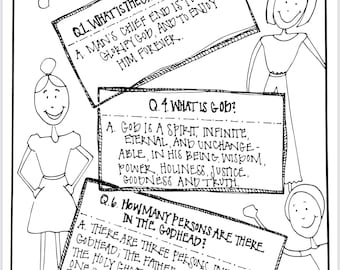 Q.1. WHAT IS THE
A. MAN'S CHIEF END IS T
GLORIFY GOD, AND TO ENJOY
HIM FOREVER.
Q.4 WHAT IS GOD?
A. GOD IS A SPIRIT, INFINITE,
ETERNAL, AND UNCHANGE-
ABLE, IN HIS BEING, WISDOM,
POWER, HOLINESS, JUSTICE,
GOODNESS AND TRUTH.
Q.6 HOW MANY PERSONS ARE THERE
IN THE GODHEAD?
A. THERE ARE THREE PERSONS IN
GODHEAD; THE FATHER
THE HOLY GH
ONE